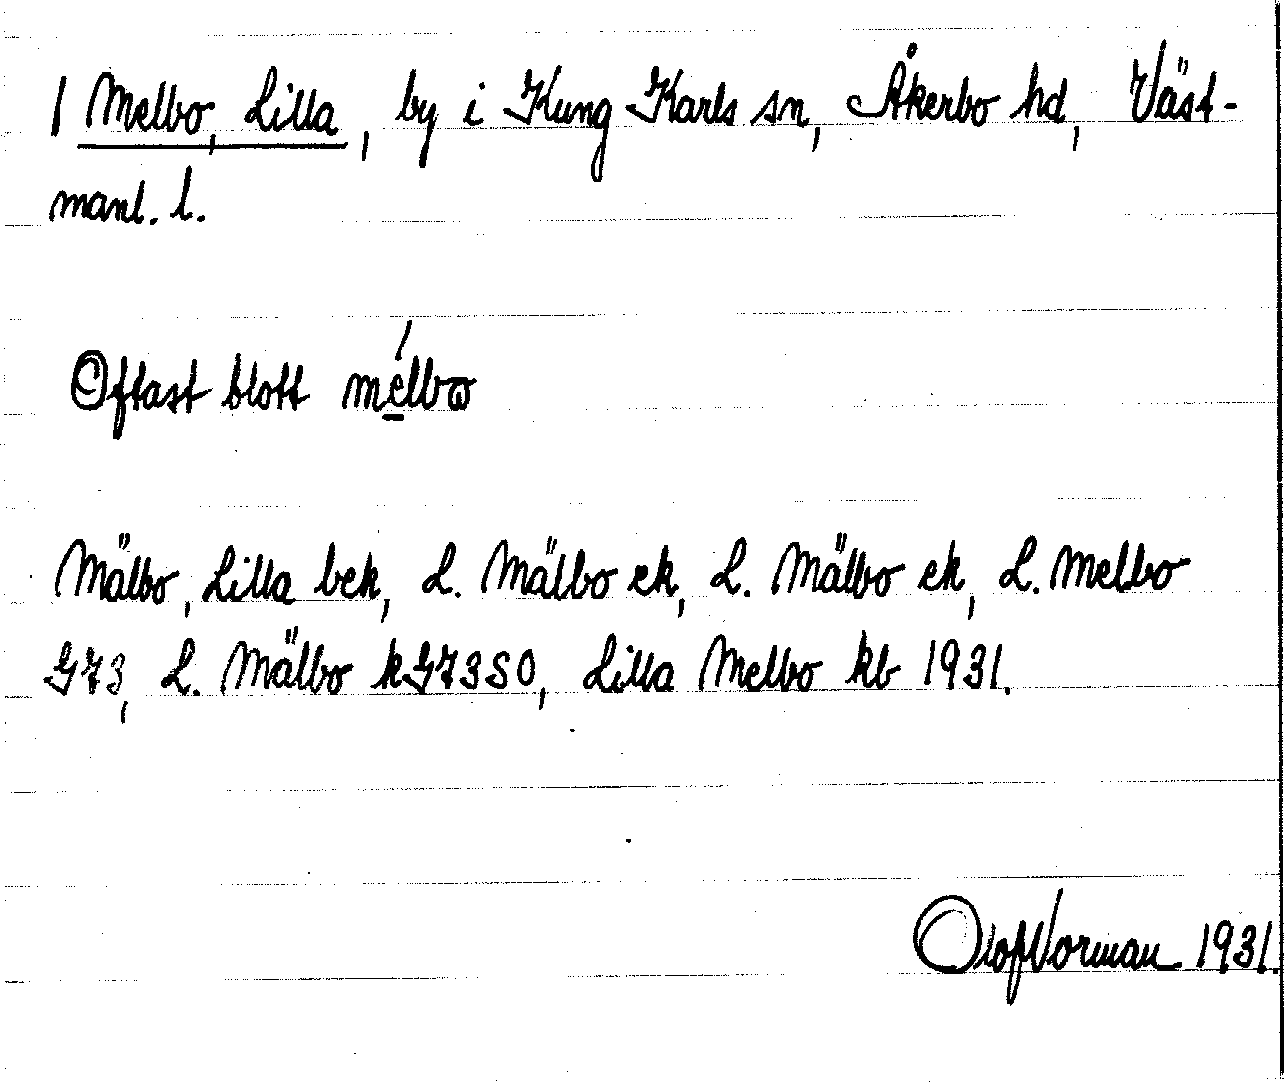 1 Melbo, Lilla, by i Kung Karls sn, Åkerbo hd, Väst-
manl. l.
Oftast blott mé̱lbω
Mälbo, Lilla bek, L. Mälbo ek, L. Mälbo ek, L. Melbo
G73, L. Mälbo kG73SO, Lilla Melbo kb 1931.
Olof Vorman 1931.